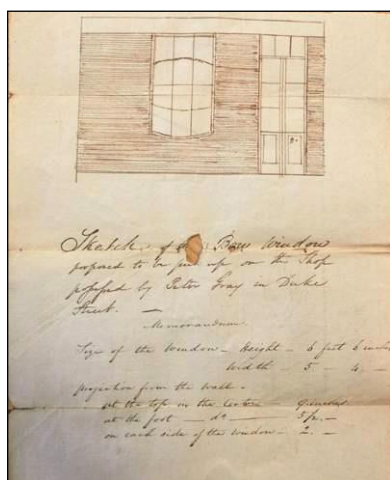 Sketch of a Bow Window
proposed to be put up on the Shop
possessed by Peter Gray in Duke
Street. —
Memorandum
Size of the Window – Height – 6 feet 6 inches
Width – 5 – 4, –
projection from the wall –
at the top in the Centre
at the foot — do —
on each side of the window – 2. –